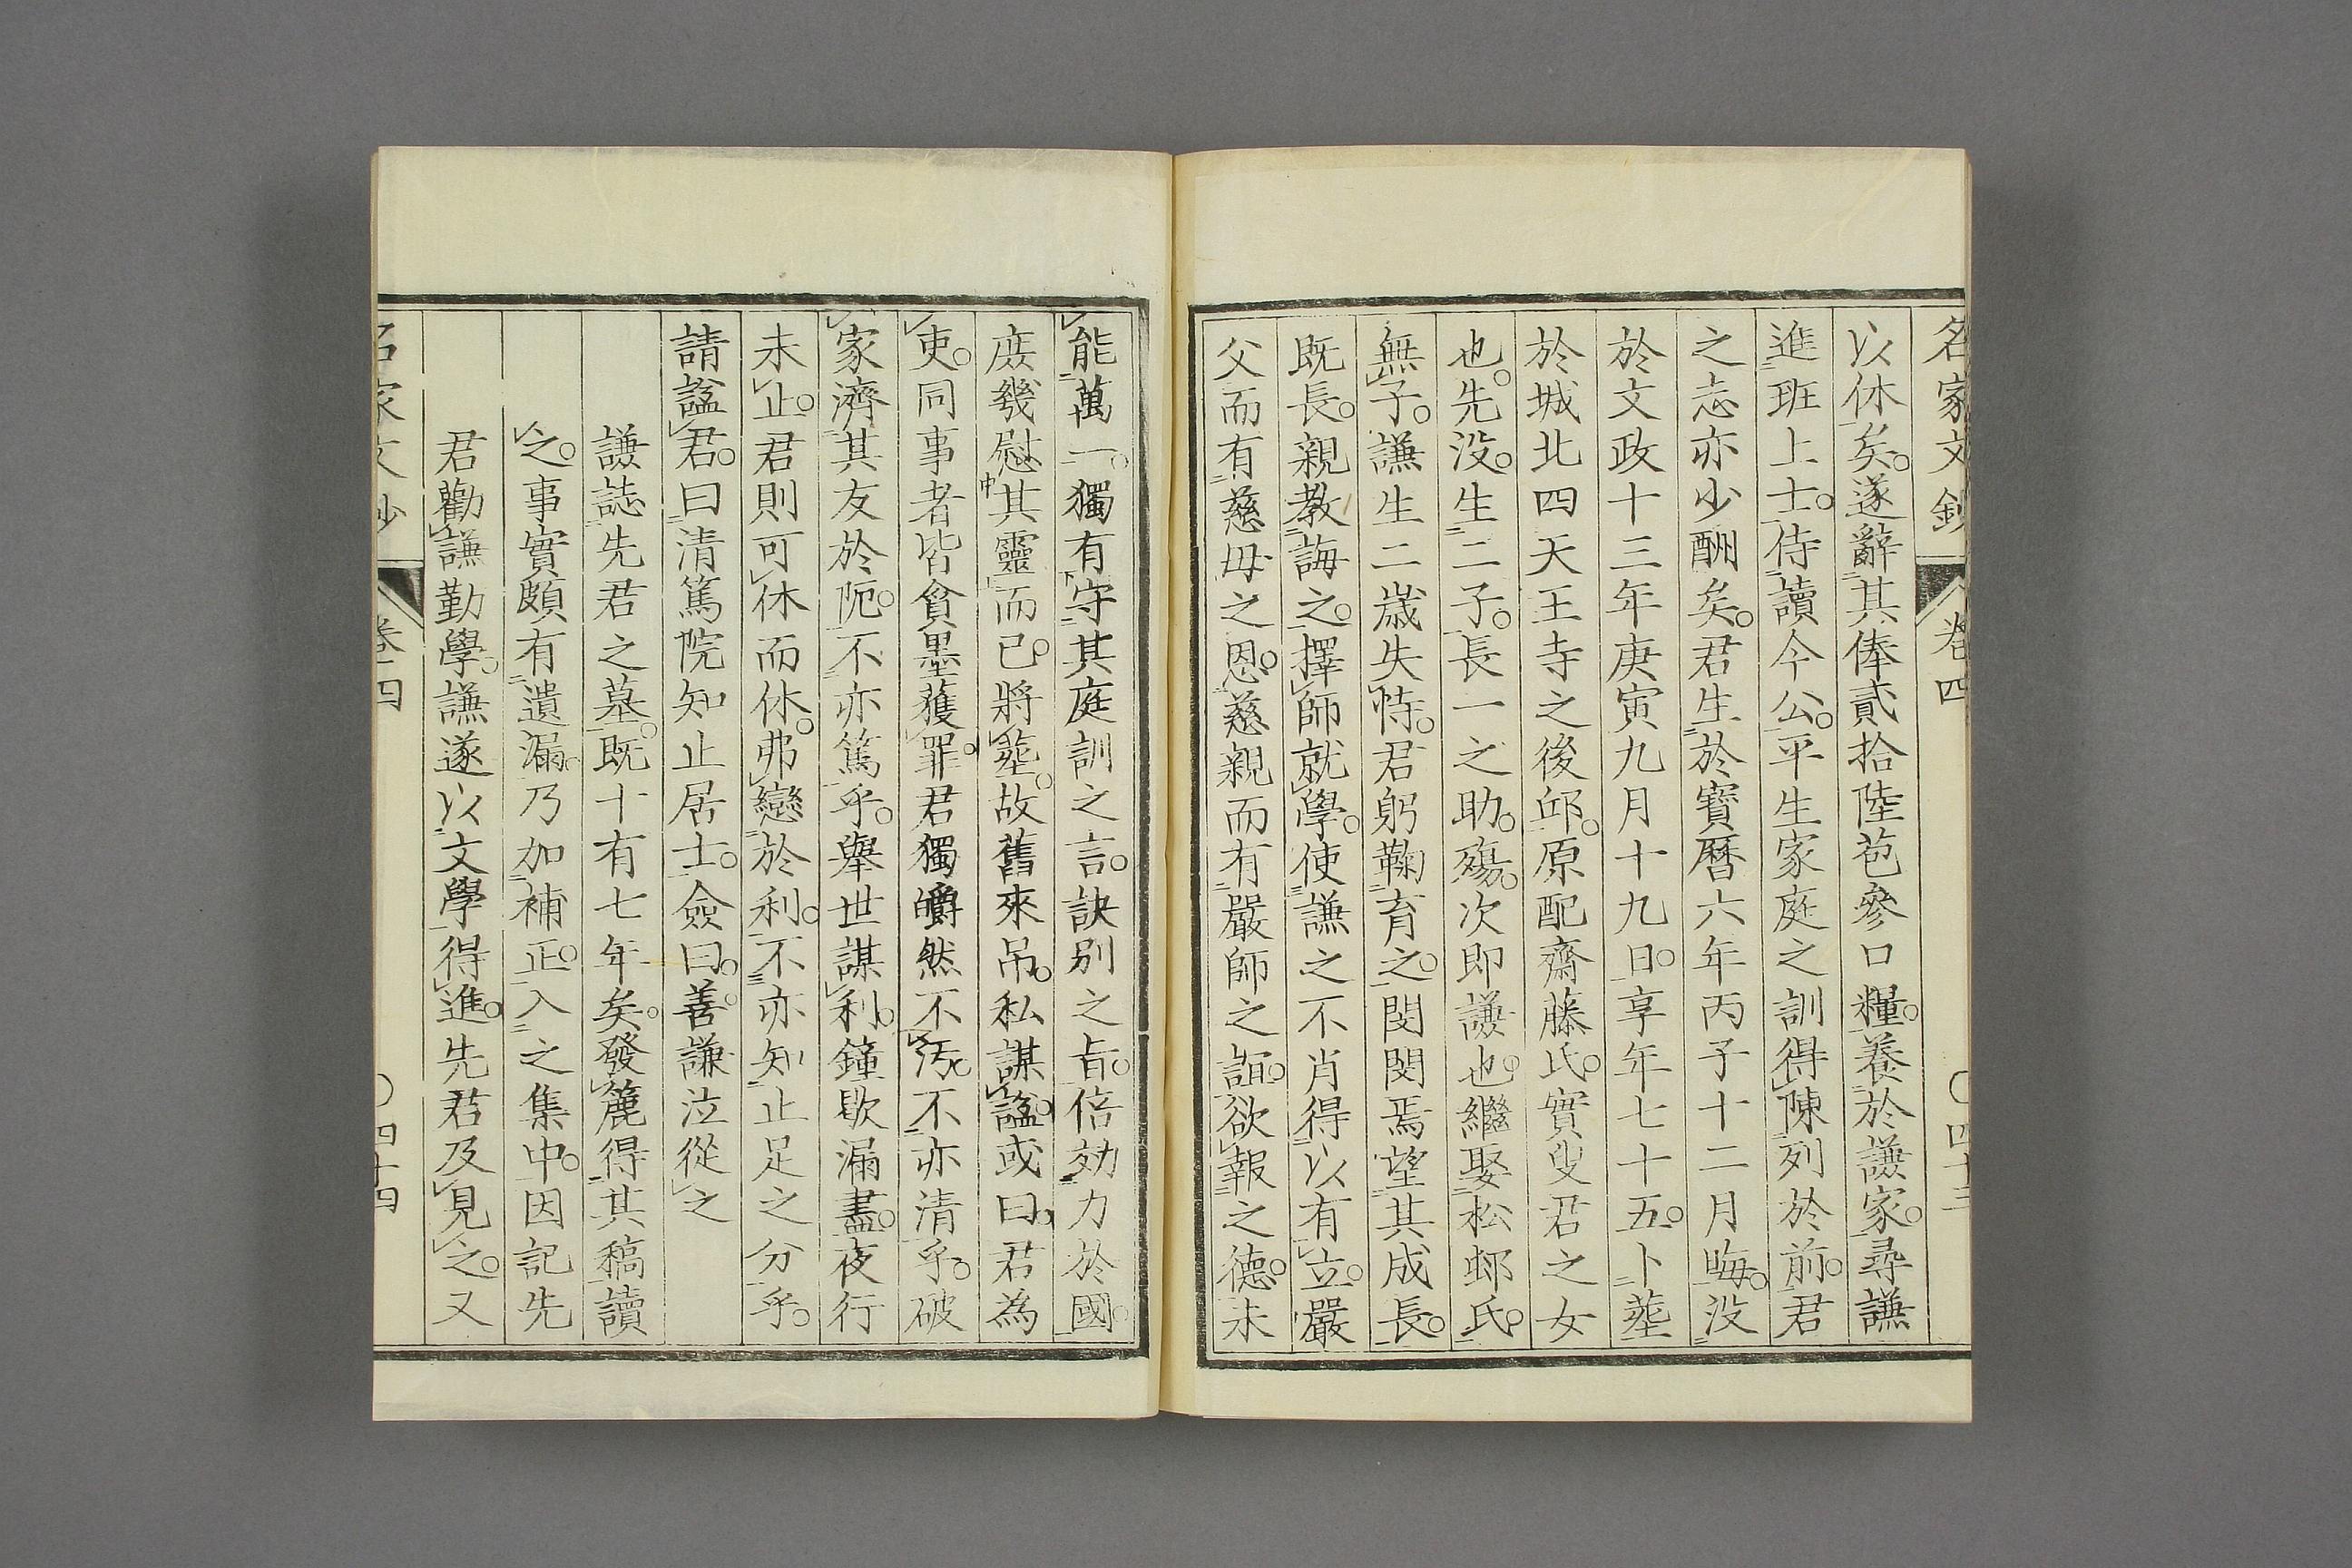 名家文鈔 卷四 ○四十三
以休矣。遂辭其俸貳拾陸苞參口糧。養於謙家。尋謙
進班上士。侍讀今公。平生家庭之訓得陳列於前。君
之志亦少酬矣。君生於寶曆六年丙子十二月晦。沒
於文政十三年庚寅九月十九日。享年七十五。卜葬
於城北四天王寺之後邱。原配齋藤氏。實叟君之女
也。先沒。生二子。長一之助。殤。次即謙也。繼娶松邨氏。
無子。謙生二歲失恃。君躬鞠育之。閔閔焉望其成長。
既長。親教誨之。擇師就學。使謙之不肖得以有立。嚴
父而有慈毋之恩。慈親而有嚴師之誼。欲報之德。未
能萬一。獨有守其庭訓之言。訣別之旨。倍効力於國。
庶幾慰其靈而已。將葬。故舊來吊。私謀諡。或曰。君為
吏。同事者皆貪墨獲罪。君獨皭然不汚。不亦清乎。破
家濟其友於阨。不亦篤乎。舉世謀利。鐘歇漏盡。夜行
未止。君則可休而休。弗戀於利。不亦知止足之分乎。
請諡君。曰清篤院知止居士。僉曰。善。謙泣從之
謙誌先君之墓。既十有七年矣。發簏得其稿讀
之。事實頗有遺漏。乃加補正。入之集中。因記先
君勸謙勤學。謙遂以文學得進。先君及見之。又
名家文鈔 卷四 ○四十四